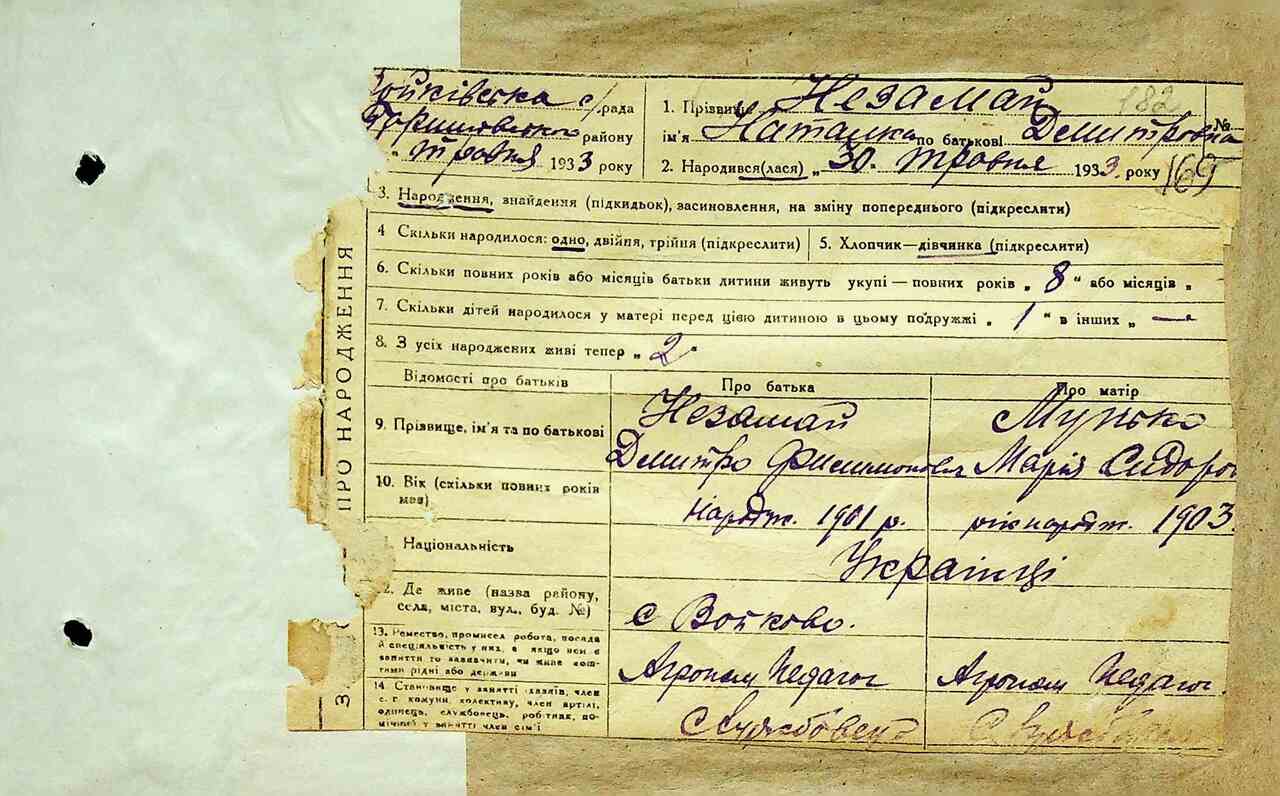 Войківська с/рада
району
" травня 1933 року
1. Прізвище Незамай 182
ім'я Наталка по батькові Демитровна №
2. Народився(лася) „ 30. травня 1933 року 169
3. Народження, знайдення (підкидьок), засиновлення, на зміну попереднього (підкреслити)
4 Скільки народилося: одно, двійня, трійня (підкреслити)
5. Хлопчик—дівчинка (підкреслити)
6. Скільки повних років або місяців батьки дитини живуть укупі — повних років „ 8 " або місяців „
7. Скільки дітей народилося у матері перед цією дитиною в цьому подружжі „ 1 " в інших „ —
8. З усіх народжених живі тепер „ 2 "
Відомості про батьків
Про батька
Про матір
9. Прізвище, ім'я та по батькові
Незамай
Демитро
Мунько
Марія Сидоров
10. Вік (скільки повних років
мав)
народж. 1901 р.
рік народж. 1903.
Національність
Українці
2. Де живе (назва району,
села, міста, вул., буд. №)
с Войково.
13. Ремество, промисел робота, посада
й спеціяльність у них, а якщо нема
заняття то зазначити, чи живе кош-
тами рідні або держави
Агроном Педагог
Агроном Педагог.
14. Становище у занятті хазяїн, член
с. г комуни, колективу, член артілі,
одинець, службовець, робітник, по-
мічний у занятті член сім'ї
Службовець
З
ПРО НАРОДЖЕННЯ